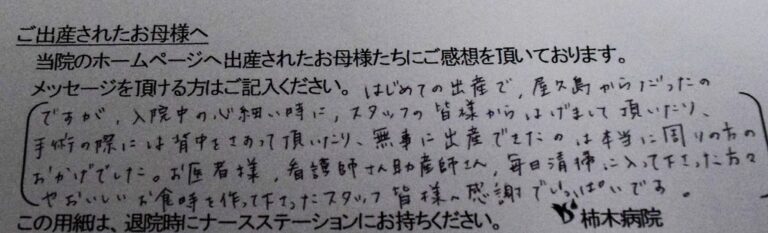 ご出産されたお母様へ
当院のホームページへ出産されたお母様たちにご感想を頂いております。
メッセージを頂ける方はご記入ください。はじめての出産で、屋久島からだったの
ですが、入院中の心細い時に、スタッフの皆様からはげまして頂いたり、
手術の際には背中をさわって頂いたり、無事に出産できたのは本当に周りの方の
おかげでした。お医者様、看護師さん助産師さん、毎日清掃に入って下さった方々
やおいしいお食時を作って下さったスタッフ皆様へ感謝でいっぱいです。
この用紙は、退院時にナースステーションにお持ちください。 柿木病院